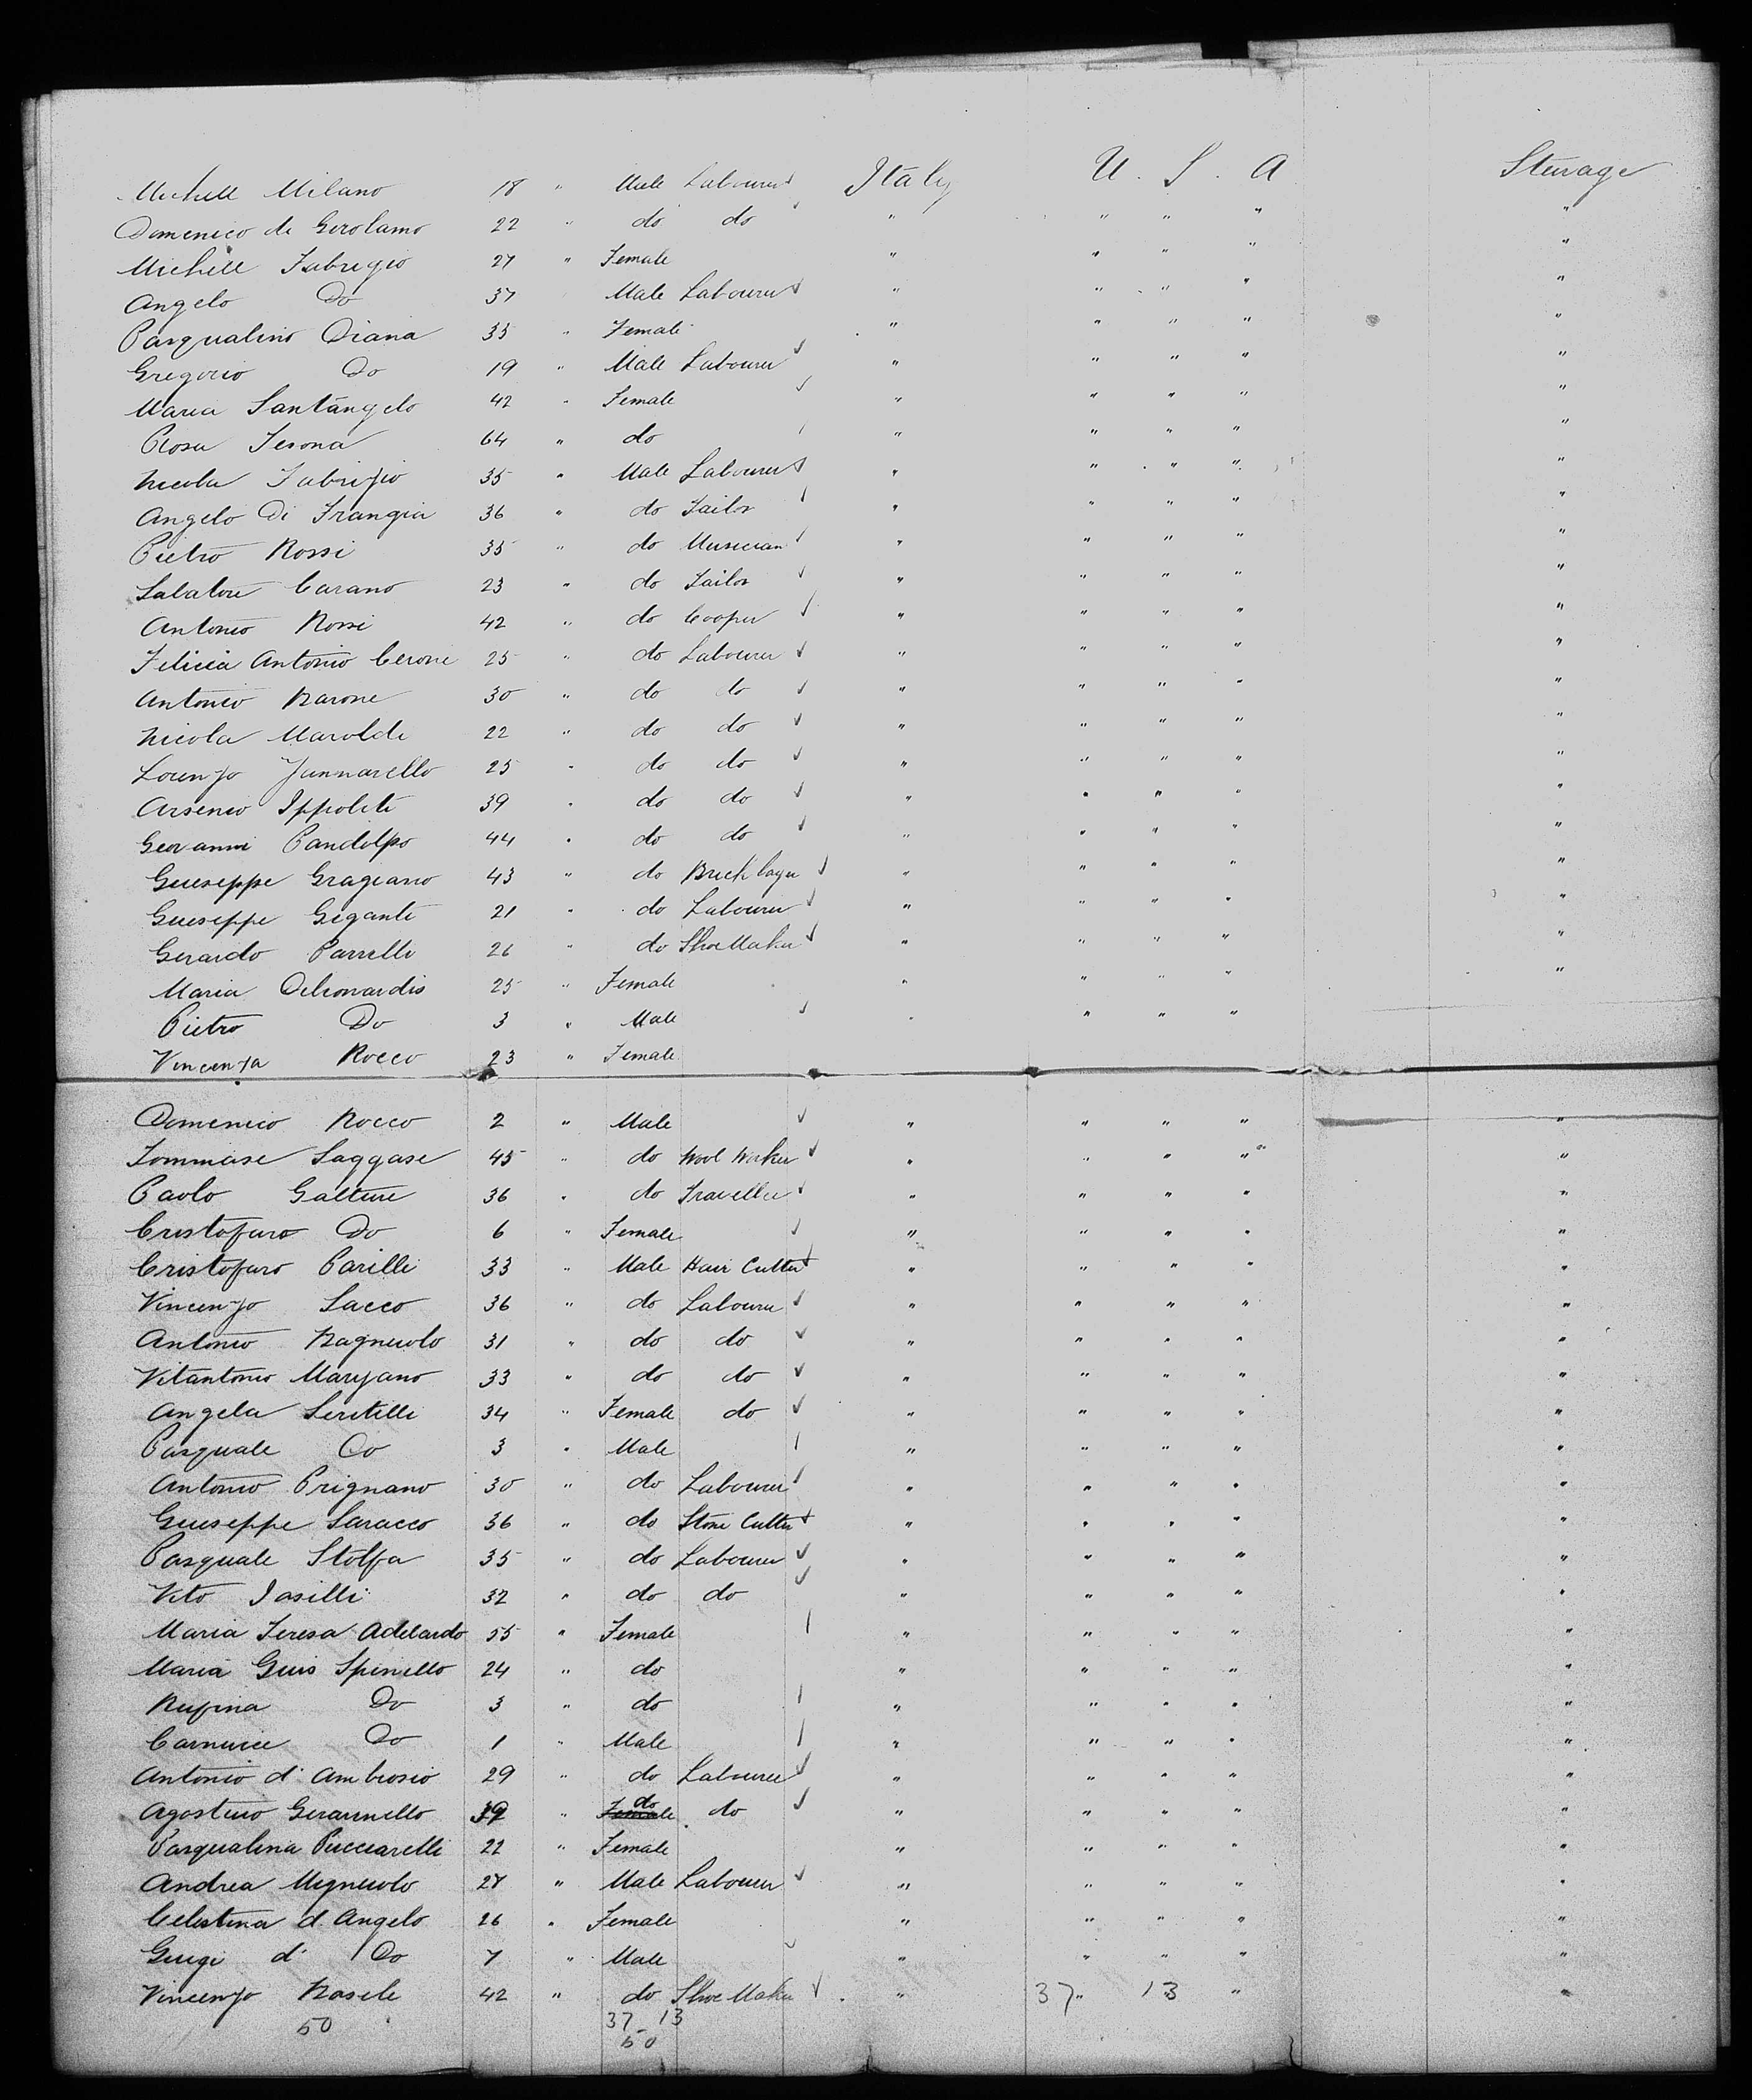 Michele Milano 18 " Male Labourer Italy U. S. A Steerage
Domenico de Gerolamo 22 " do do " " " " "
Michele Fabrizio 27 " Female " " " " "
Angelo Do 37 Male Labourer " " " " "
Pasqualino Diana 35 " Female " " " " "
Gregorio Do 19 " Male Labourer " " " " "
Maria Santangelo 42 " Female " " " " "
Rosa Tesona 64 " do " " " " "
Nicola Fabrizio 35 " Male Labourer " " " " "
Angelo Di Frangia 36 " do Tailor " " " " "
Pietro Rossi 35 " do Musician " " " " "
Salvatore Carano 23 " do Tailor " " " " "
Antonio Rossi 42 " do Cooper " " " " "
Felicia Antonio Cerone 25 " do Labourer " " " " "
Antonio Barone 30 " do do " " " " "
Nicola Maroldi 22 " do do " " " " "
Lorenzo Jannarello 25 " do do " " " " "
Arsenio Ippoliti 39 " do do " " " " "
Geovanni Pandolfo 44 " do do " " " " "
Guiseppe Graziano 43 " do Brick layer " " " " "
Guiseppe Giganti 21 " do Labourer " " " " "
Gerardo Parrelli 26 " do Shoe Maker " " " " "
Maria Deleonardis 25 " Female " " " " "
Pietro Do 3 " Male " " " "
Vincenza Rocco 23 " Female
Domenico Rocco 2 " Male " " " " "
Tommase Saggase 45 " do Wool Worker " " " " "
Paolo Galture 36 " do Traveller " " " " "
Cristofaro Do 6 " Female " " " " "
Cristofaro Parilli 33 " Male Hair Cutter " " " " "
Vincenzo Sacco 36 " do Labourer " " " " "
Antonio Bagnuolo 31 " do do " " " " "
Vitantonio Marzano 33 " do do " " " " "
Angela Seritelli 34 " Female do " " " " "
Pasquale Do 3 " Male " " " " "
Antonio Prignano 30 " do Labourer " " " " "
Guiseppe Saracco 36 " do Stone Cutter " " " " "
Pasquale Stolfa 35 " do Labourer " " " " "
Vito Iasilli 32 " do do " " " " "
Maria Teresa Adelardo 55 " Female " " " " "
Maria Guis Spinello 24 " do " " " " "
Rufina Do 3 " do " " " " "
Carmine Do 1 " Male " " " " "
Antonio d' Ambrosio 29 " do Labourer " " " " "
Agostino Gerarnello 39 " do do " " " " "
Pasqualina Pucciarelli 22 " Female " " " " "
Andrea Mignuolo 27 " Male Labourer " " " " "
Celestina d. Angelo 26 " Female " " " " "
Giugi d' Do 7 " Male " " " " "
Vincenzo Basile 42 " do Shoe Maker " 37 " 13 " "
50 37 13
50